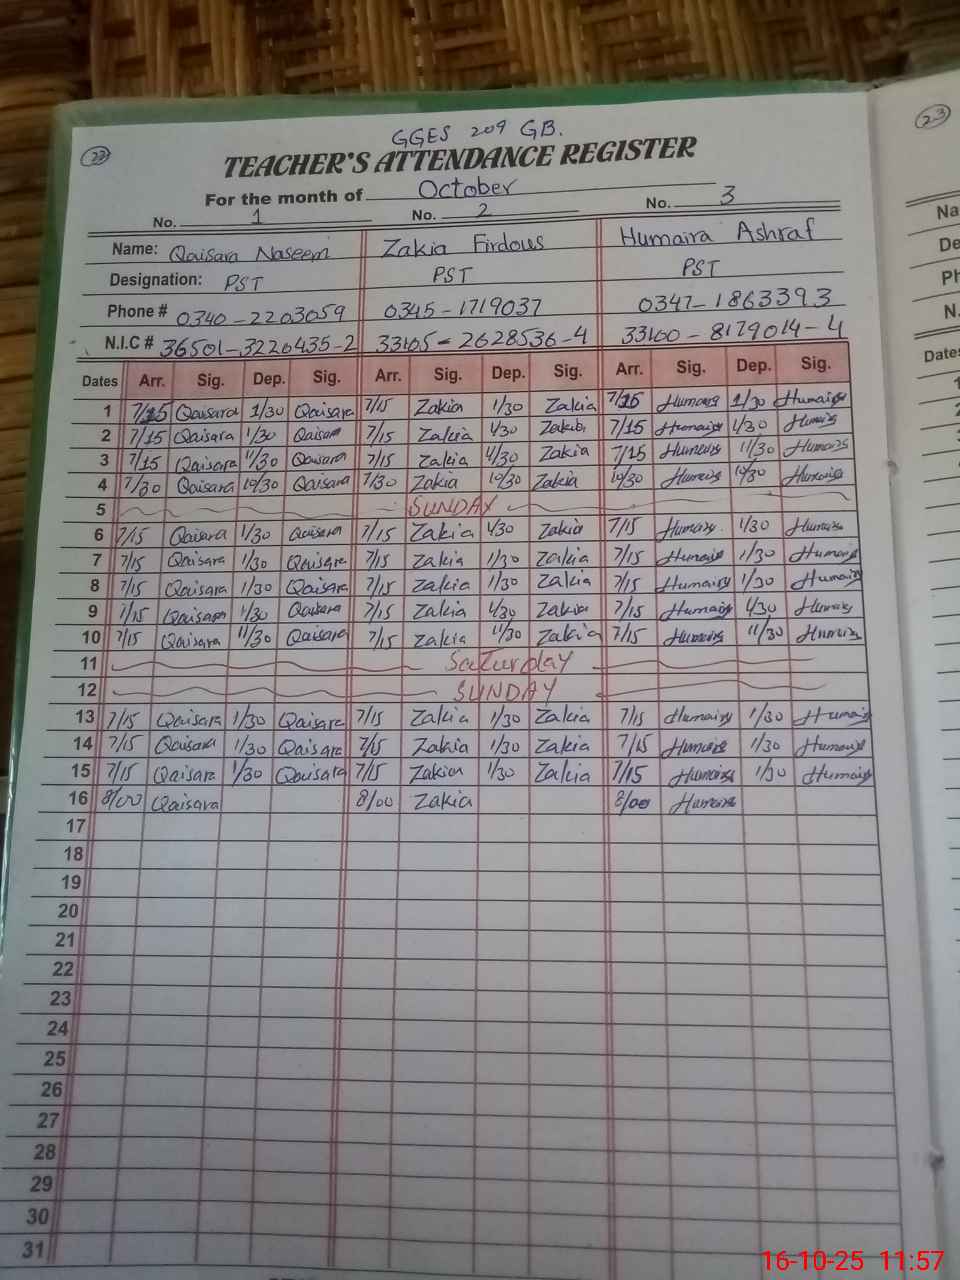 GGES 209 GB.
23
23
TEACHER'S ATTENDANCE REGISTER
For the month of October
No. 1 No. 2 No. 3
Name: Qaisara Naseem Zakia Firdous Humaira Ashraf
Designation: PST PST PST
Phone # 0340-2203059 0345-1719037 0347-1863393
N.I.C # 36501-3220435-2 33105-2628536-4 33100-8179014-4
Dates Arr. Sig. Dep. Sig. Arr. Sig. Dep. Sig. Arr. Sig. Dep. Sig.
1 7/15 Qaisara 1/30 Qaisara 7/15 Zakia 1/30 Zakia 7/15 Humaira 1/30 Humaira
2 7/15 Qaisara 1/30 Qaisara 7/15 Zakia 1/30 Zakia 7/15 Humaira 1/30 Humaira
3 7/15 Qaisara 11/30 Qaisara 7/15 Zakia 11/30 Zakia 7/15 Humaira 11/30 Humaira
4 7/30 Qaisara 10/30 Qaisara 7/30 Zakia 10/30 Zakia 10/30 Humaira 10/30 Humaira
5 SUNDAY
6 7/15 Qaisara 1/30 Qaisara 7/15 Zakia 1/30 Zakia 7/15 Humaira 1/30 Humaira
7 7/15 Qaisara 1/30 Qaisara 7/15 Zakia 1/30 Zakia 7/15 Humaira 1/30 Humaira
8 7/15 Qaisara 1/30 Qaisara 7/15 Zakia 1/30 Zakia 7/15 Humaira 1/30 Humaira
9 7/15 Qaisara 1/30 Qaisara 7/15 Zakia 1/30 Zakia 7/15 Humaira 1/30 Humaira
10 7/15 Qaisara 11/30 Qaisara 7/15 Zakia 11/30 Zakia 7/15 Humaira 11/30 Humaira
11 Saturday
12 SUNDAY
13 7/15 Qaisara 1/30 Qaisara 7/15 Zakia 1/30 Zakia 7/15 Humaira 1/30 Humaira
14 7/15 Qaisara 1/30 Qaisara 7/15 Zakia 1/30 Zakia 7/15 Humaira 1/30 Humaira
15 7/15 Qaisara 1/30 Qaisara 7/15 Zakia 1/30 Zakia 7/15 Humaira 1/30 Humaira
16 8/00 Qaisara 8/00 Zakia 8/00 Humaira
17
18
19
20
21
22
23
24
25
26
27
28
29
30
31
Na
De
Ph
N.
Dates
16-10-25 11:57